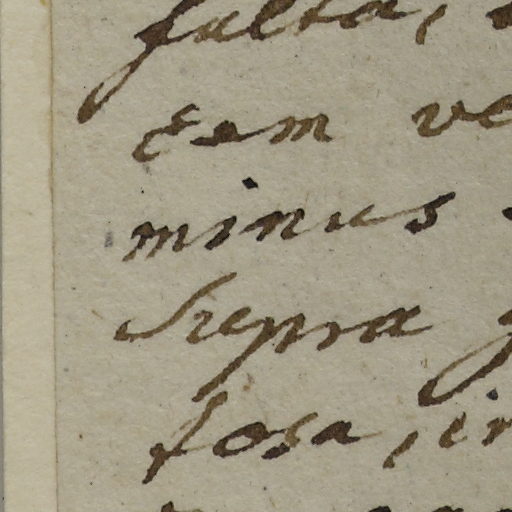 fulta,
Eam ve
minus
Supra
fosa, in